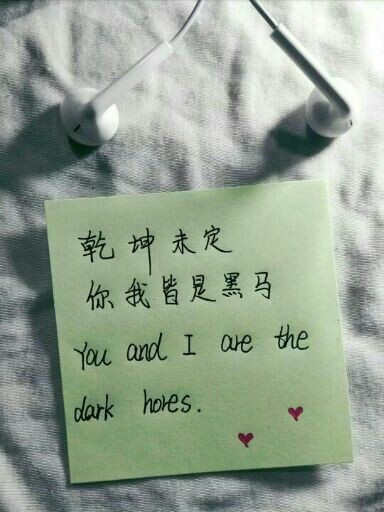 乾坤未定
你我皆是黑马
You and I are the
dark hores.